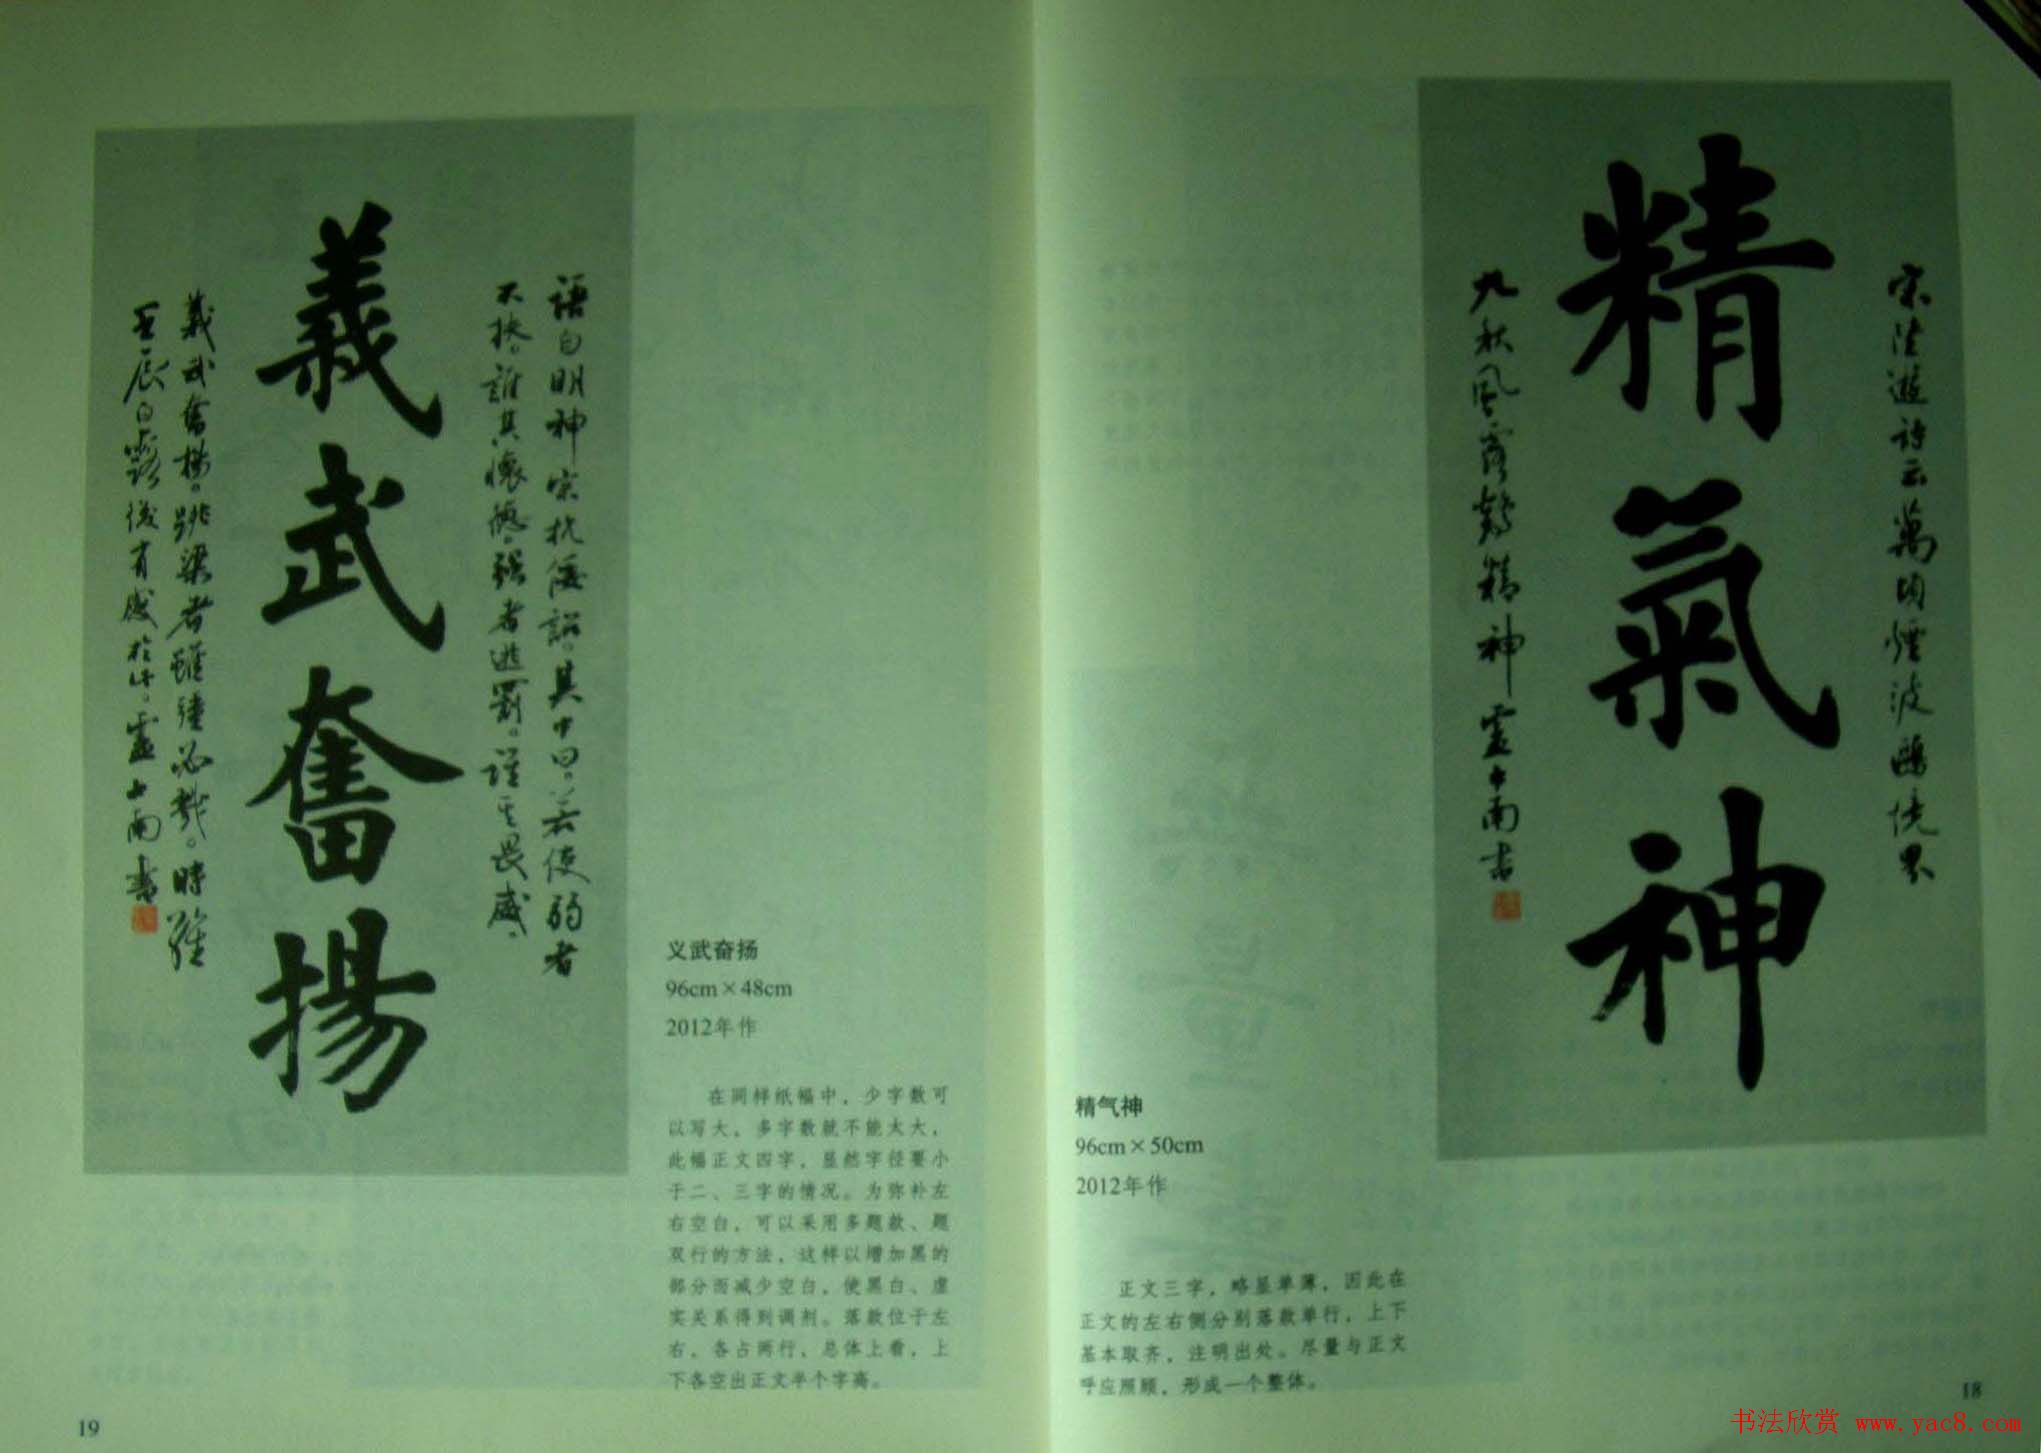 精氣神
宋陸遊詩云萬頃煙波鷗境界
九秋風露鶴精神 盧中南書
精气神
96cm×50cm
2012年作
正文三字，略显单薄，因此在
正文的左右侧分别落款单行，上下
基本取齐，注明出处。尽量与正文
呼应照顾，形成一个整体。
18
義武奮揚
語自明神宗抗倭詔。其中曰。若使弱者
不扶。誰其懷德。强者逃罰。誰其畏威。
義武奮揚。跳梁者雖強必戮。時維
壬辰白露後有感於作。盧中南書
义武奋扬
96cm×48cm
2012年作
在同样纸幅中，少字数可
以写大，多字数就不能太大，
此幅正文四字，显然字径要小
于二、三字的情况。为弥补左
右空白，可以采用多题款、题
双行的方法，这样以增加黑的
部分而减少空白，使黑白、虚
实关系得到调剂。落款位于左
右，各占两行，总体上看，上
下各空出正文半个字高。
19
书法欣赏 www.yac8.com